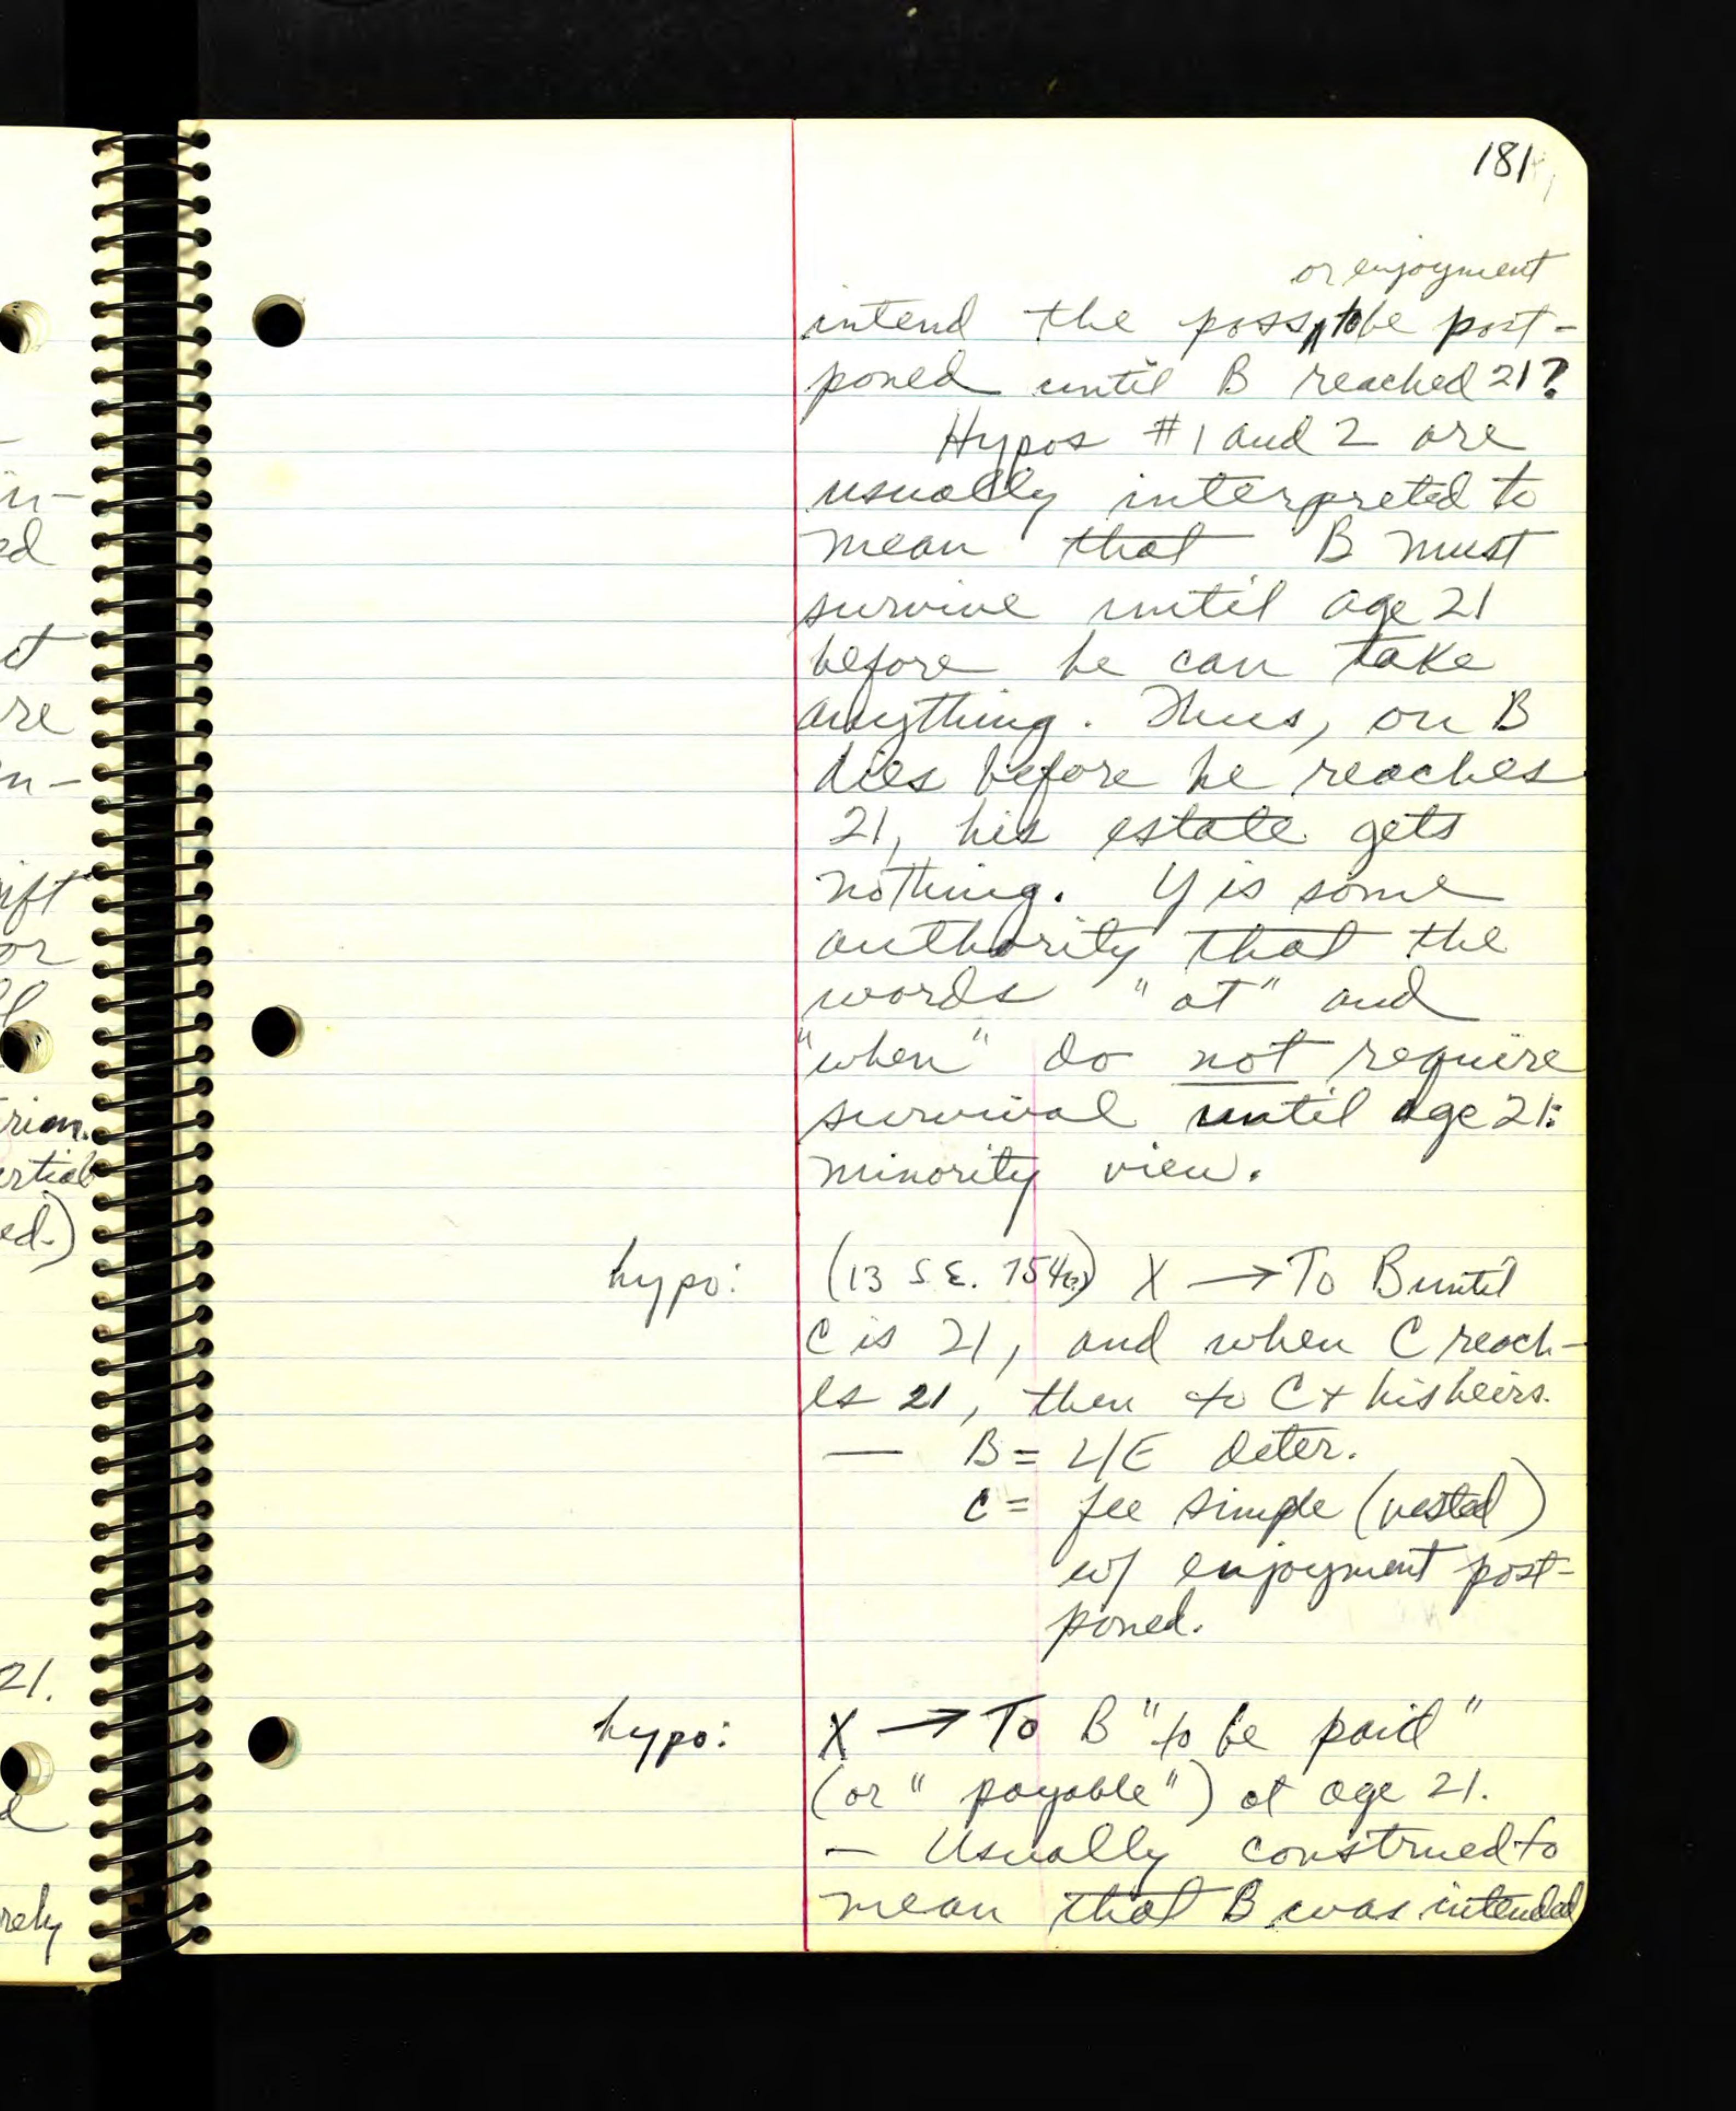 181
or enjoyment
intend the poss, to be post-
poned until B reached 21?
Hypos #1 and 2 are
usually interpreted to
mean that B must
survive until age 21
before he can take
anything. Thus, on B
dies before he reaches
21, his estate gets
nothing. Y is some
authority that the
words "at" and
"when" do not require
survival until age 21:
minority view.
hypo: (13 S.E. 754) X → To B until
C is 21, and when C reach-
es 21, then to C + his heirs.
— B = L/E deter.
C = fee simple (vested)
w/ enjoyment post-
poned.
hypo: X → To B "to be paid"
(or "payable") at age 21.
— Usually construed to
mean that B was intended
in-
ed
ct
re
n-
ift
or
ed.)
21.
rely